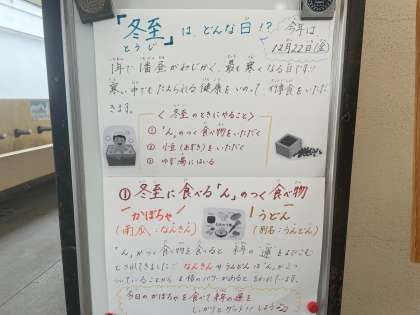 「冬至」は、どんな日!?
とうじ
今年は
12月22日(金)
1年で1番昼がみじかく、最も寒くなる日です!!
寒い中でもたえられる健康をいのって 行事食をいただ
きます。
<冬至のときにやること>
① "ん"のつく食べ物をいただく
② 小豆(あずき)をいただく
③ ゆず湯にはいる
① 冬至に食べる「ん」のつく食べ物
かぼちゃ
(南瓜:なんきん)
うどん
(別名:うんどん)
"ん"がつく食べ物を食べると
運をよびこむ
とされてきました♡ なんきんやうんどんは"ん"が2つ
ついていることから
倍のパワーがあると言われています。
今日のかぼちゃを食べて来年の運を
しっかりとゲット!!しよう